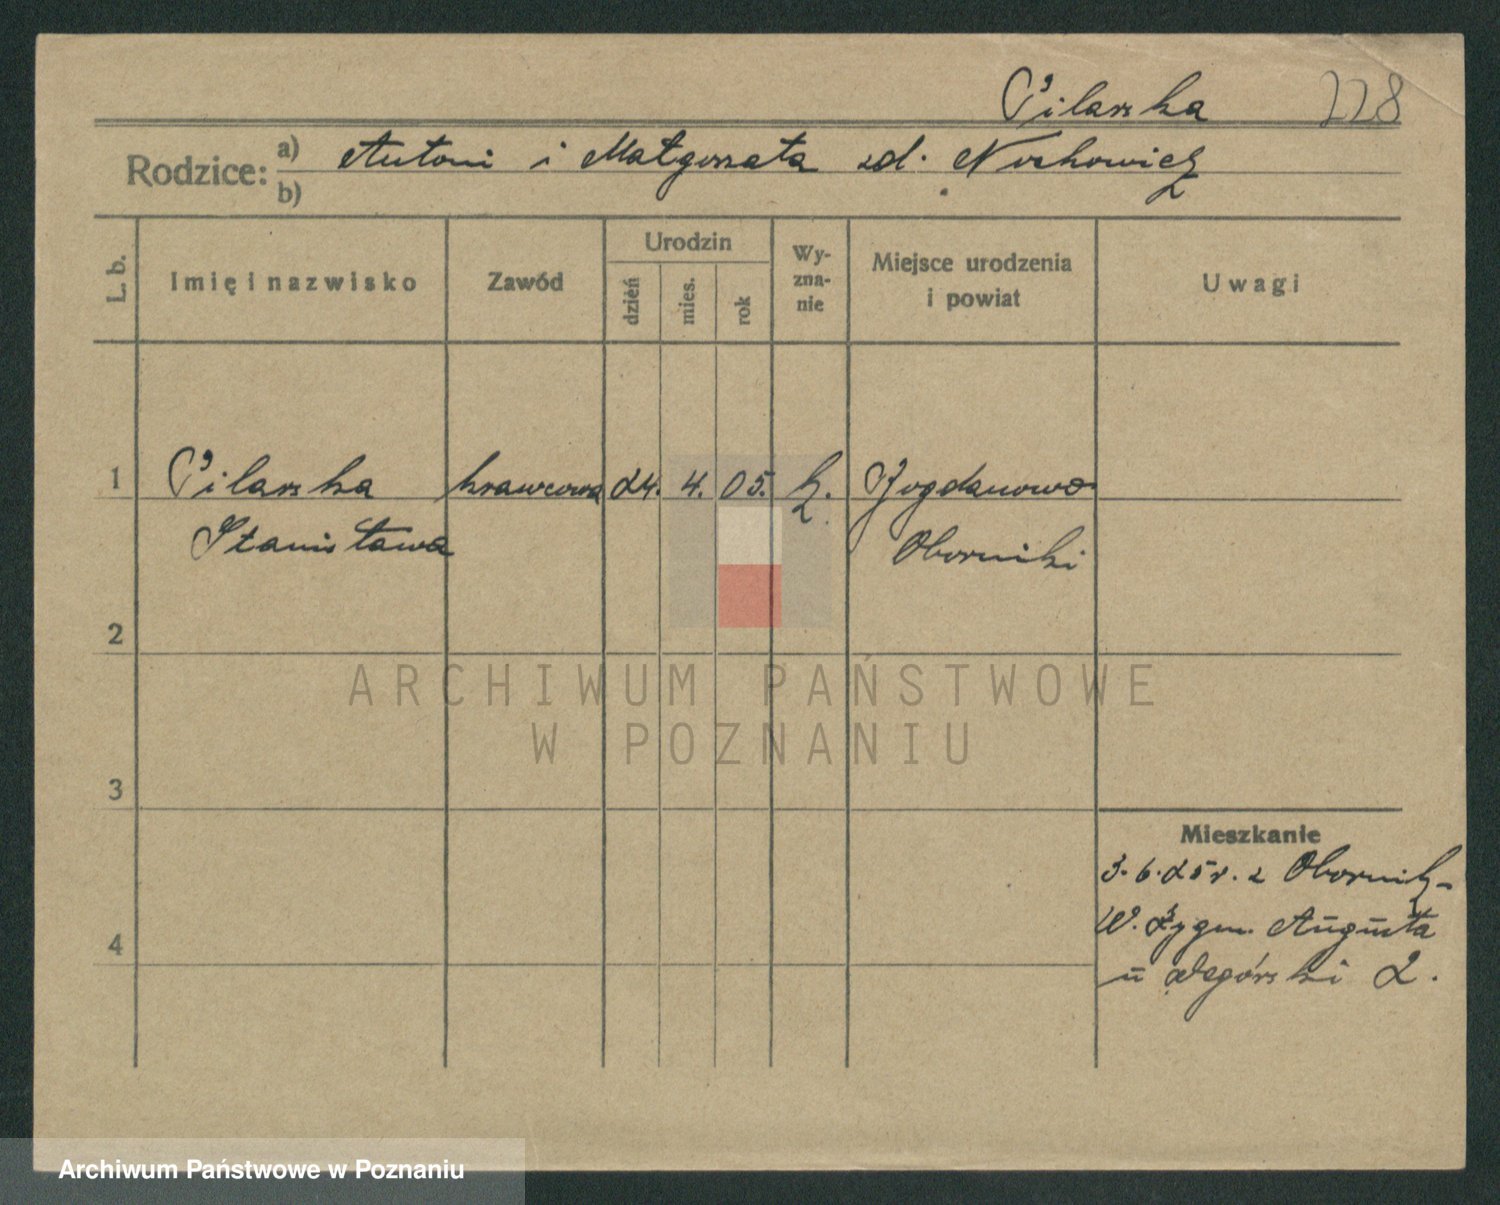 Pilarska 228
Rodzice: a) Antoni i Małgorzata zd. Nochowicz
b)
L. b. Imię i nazwisko Zawód Urodzin dzień mies. rok Wy-zna-nie Miejsce urodzenia i powiat Uwagi
1 Pilarska krawcowa 24. 4. 05. k. Bogdanowo
Stanisława Oborniki
2
ARCHIWUM PAŃSTWOWE
W POZNANIU
3
Mieszkanie
3. 6. 25 r. z Obornik -
W. Zygm. Augusta
4
u 2.
Archiwum Państwowe w Poznaniu